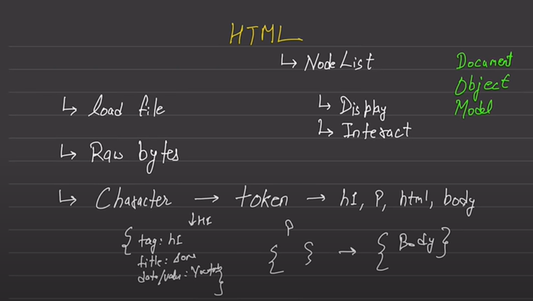 HTML
↳ NodeList
Document
Object
Model
↳ load file
↳ Display
↳ Interact
↳ Raw bytes
↳ Character → token → h1, P, html, body
↓H1
{ tag: h1
title:
data/value:
}
P
{ } → { Body }